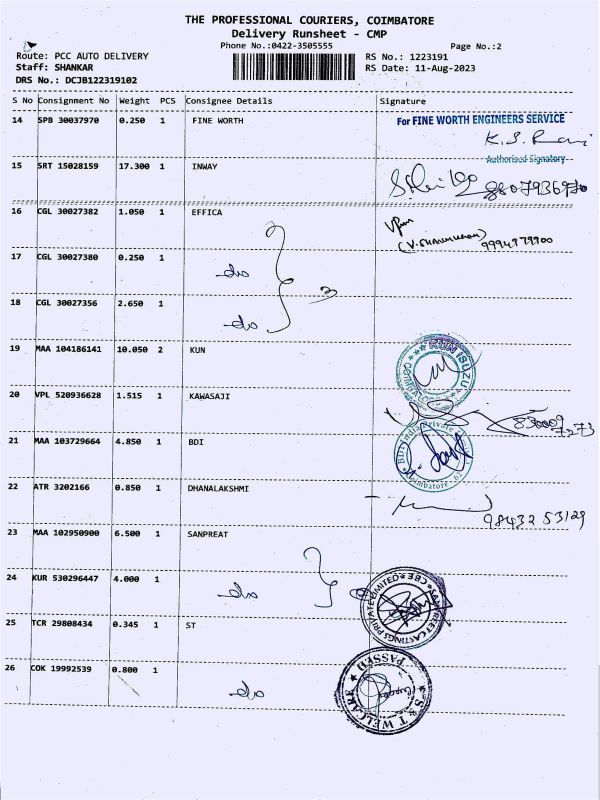 THE PROFESSIONAL COURIERS, COIMBATORE
Delivery Runsheet - CMP
Phone No.:0422-3505555 Page No.:2
Route: PCC AUTO DELIVERY RS No.: 1223191
Staff: SHANKAR RS Date: 11-Aug-2023
DRS No.: DCJB122319102
S No Consignment No Weight PCS Consignee Details Signature
14 SPB 30037970 0.250 1 FINE WORTH For FINE WORTH ENGINEERS SERVICE
Authorised Signatory
15 SRT 15028159 17.300 1 INWAY
16 CGL 30027382 1.050 1 EFFICA
9994979900
17 CGL 30027380 0.250 1 do
3
18 CGL 30027356 2.650 1 do
19 MAA 104186141 10.050 2 KUN KUN ISUZU
20 VPL 520936628 1.515 1 KAWASAJI
21 MAA 103729664 4.850 1 BDI
22 ATR 3202166 0.850 1 DHANALAKSHMI
98432 53129
23 MAA 102950900 6.500 1 SANPREAT
24 KUR 530296447 4.000 1 do
CASTINGS PRIVATE LIMITED CBE
25 TCR 29808434 0.345 1 ST
26 COK 19992539 0.800 1 do
PASSED
S T WELCARE